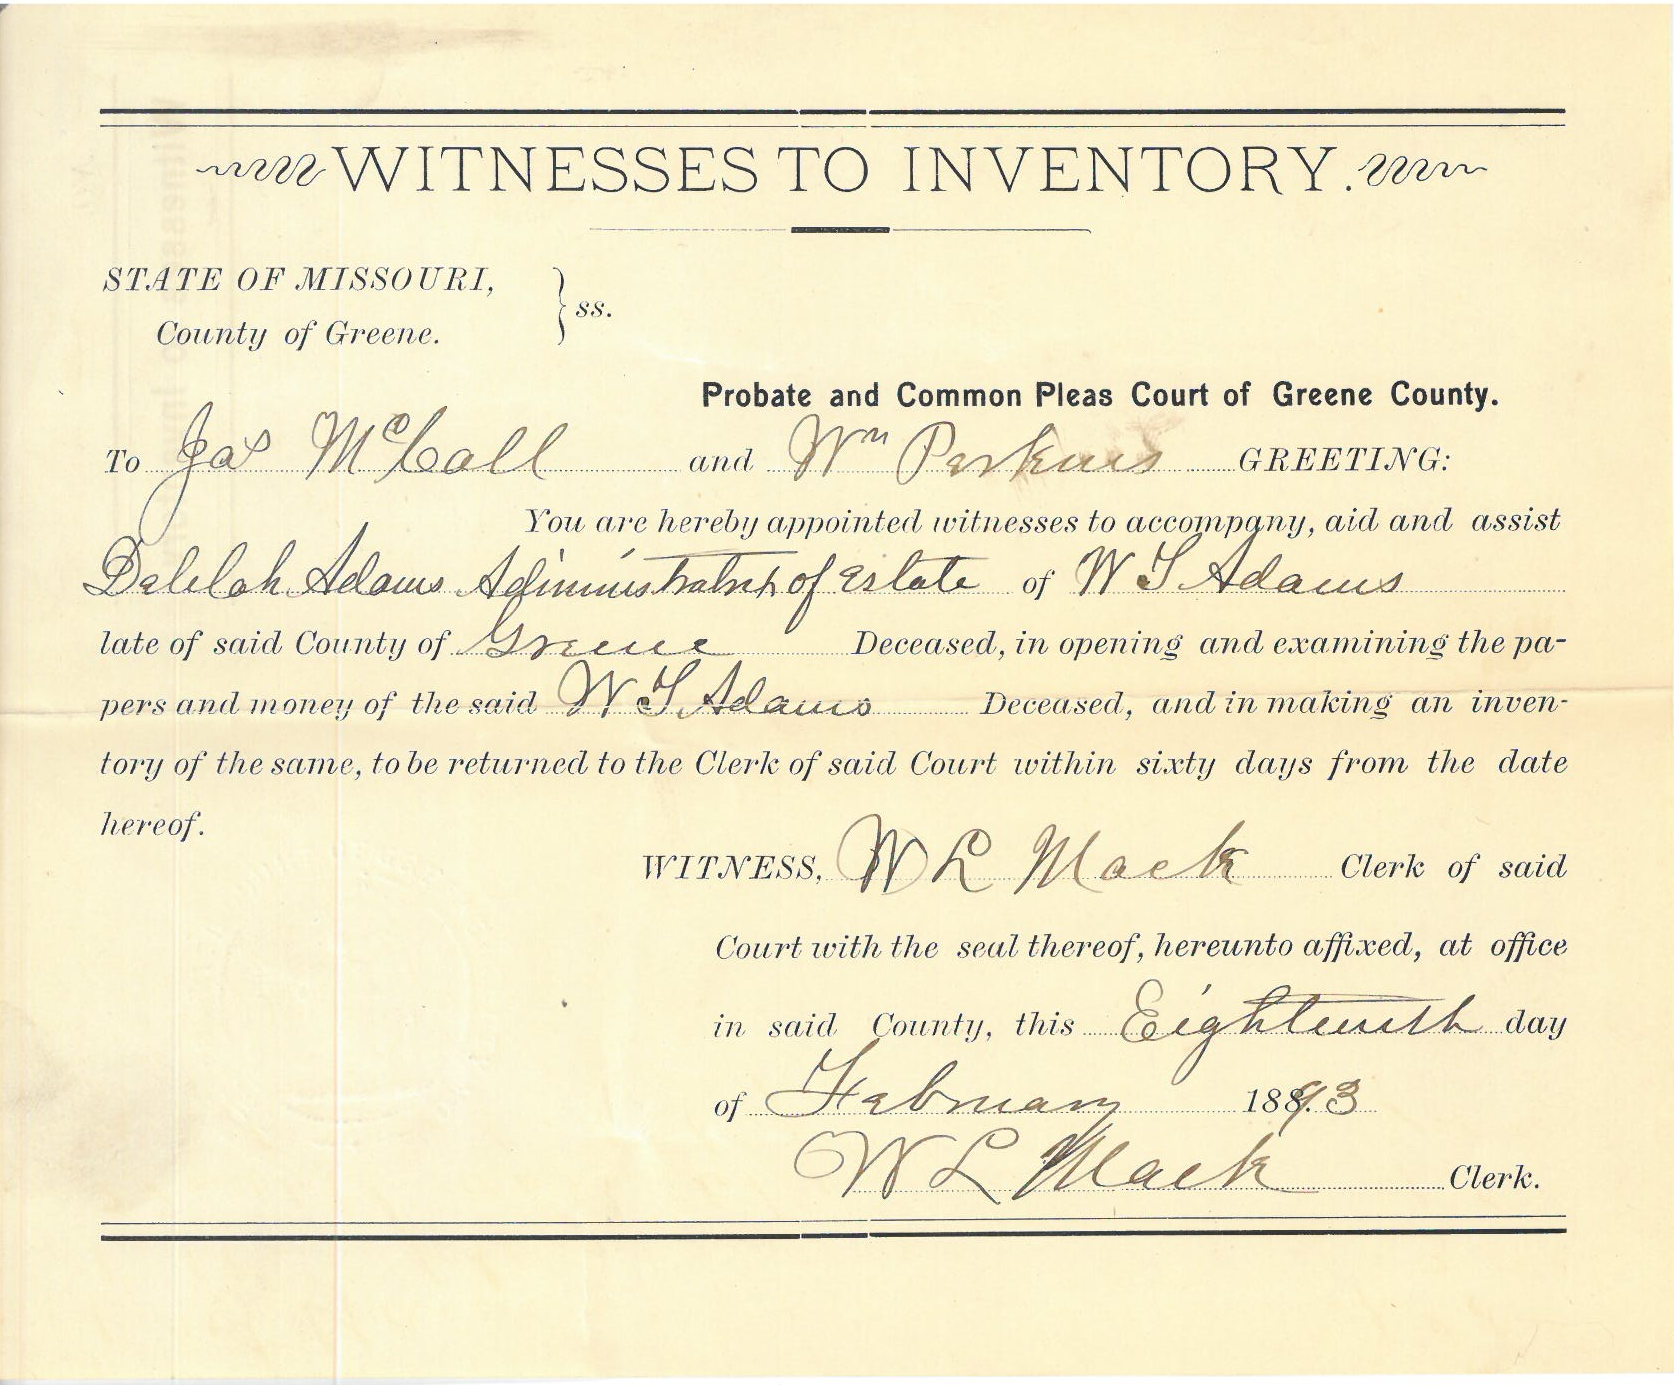 WITNESSES TO INVENTORY.
STATE OF MISSOURI,
County of Greene. } ss.
Probate and Common Pleas Court of Greene County.
To Jas McCall and Wm Perkins GREETING:
You are hereby appointed witnesses to accompany, aid and assist
Delilah Adams Administratrix of Estate of W T Adams
late of said County of Greene Deceased, in opening and examining the pa-
pers and money of the said W T Adams Deceased, and in making an inven-
tory of the same, to be returned to the Clerk of said Court within sixty days from the date
hereof.
WITNESS, W L Mack Clerk of said
Court with the seal thereof, hereunto affixed, at office
in said County, this Eighteenth day
of February 1893
W L Mack Clerk.